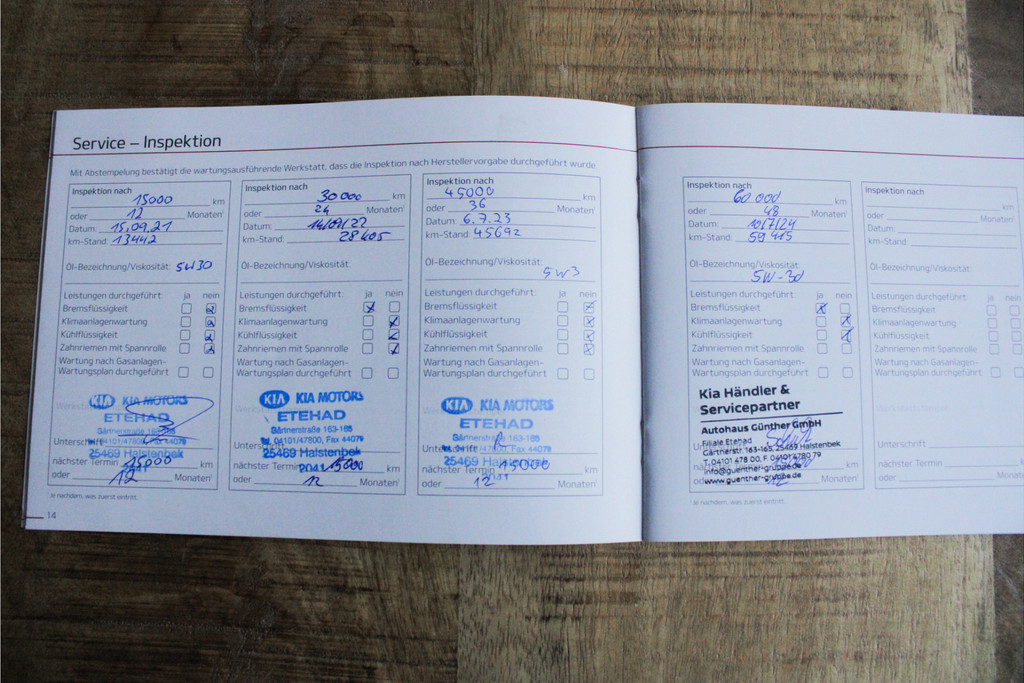 Service – Inspektion
Mit Abstempelung bestätigt die wartungsausführende Werkstatt, dass die Inspektion nach Herstellervorgabe durchgeführt wurde.
Inspektion nach
15000 km
oder 12 Monaten¹
Datum: 15.09.21
km-Stand: 13442
Öl-Bezeichnung/Viskosität: 5W30
Leistungen durchgeführt: ja nein
Bremsflüssigkeit
Klimaanlagenwartung
Kühlflüssigkeit
Zahnriemen mit Spannrolle
Wartung nach Gasanlagen-
Wartungsplan durchgeführt
KIA KIA MOTORS
ETEHAD
Gärtnerstraße 163-165
04101/47800, Fax 44079
25469 Halstenbek
Unterschrift
nächster Termin 15000 km
oder 12 Monaten¹
¹ Je nachdem, was zuerst eintritt.
14
Inspektion nach
30000 km
oder 24 Monaten¹
Datum: 14/09/22
km-Stand: 28405
Öl-Bezeichnung/Viskosität:
Leistungen durchgeführt: ja nein
Bremsflüssigkeit x
Klimaanlagenwartung x
Kühlflüssigkeit x
Zahnriemen mit Spannrolle x
Wartung nach Gasanlagen-
Wartungsplan durchgeführt
KIA KIA MOTORS
ETEHAD
Gärtnerstraße 163-165
04101/47800, Fax 44079
25469 Halstenbek
2041
nächster Termin 15000 km
oder 12 Monaten¹
Inspektion nach
45000 km
oder 36 Monaten¹
Datum: 6.7.23
km-Stand: 45692
Öl-Bezeichnung/Viskosität:
5W3
Leistungen durchgeführt: ja nein
Bremsflüssigkeit x
Klimaanlagenwartung x
Kühlflüssigkeit x
Zahnriemen mit Spannrolle x
Wartung nach Gasanlagen-
Wartungsplan durchgeführt
KIA KIA MOTORS
ETEHAD
Gärtnerstraße 163-165
04101/47800, Fax 44079
25469 Halstenbek
nächster Termin 15000 km
oder 12 Monaten¹
Inspektion nach
60.000 km
oder 48 Monaten¹
Datum: 10/7/24
km-Stand: 59415
Öl-Bezeichnung/Viskosität:
5W-30
Leistungen durchgeführt: ja nein
Bremsflüssigkeit x
Klimaanlagenwartung x
Kühlflüssigkeit x
Zahnriemen mit Spannrolle
Wartung nach Gasanlagen-
Wartungsplan durchgeführt
Kia Händler &
Servicepartner
Autohaus Günther GmbH
Filiale Etehad
Gärtnerstr. 163-165, 25469 Halstenbek
T. 04101 478 00, F. 04101 4780 79
info@guenther-gruppe.de
www.guenther-gruppe.de
¹ Je nachdem, was zuerst eintritt.
Inspektion nach
km
oder Monaten¹
Datum:
km-Stand:
Öl-Bezeichnung/Viskosität:
Leistungen durchgeführt: ja nein
Bremsflüssigkeit
Klimaanlagenwartung
Kühlflüssigkeit
Zahnriemen mit Spannrolle
Wartung nach Gasanlagen-
Wartungsplan durchgeführt
Unterschrift
nächster Termin km
oder